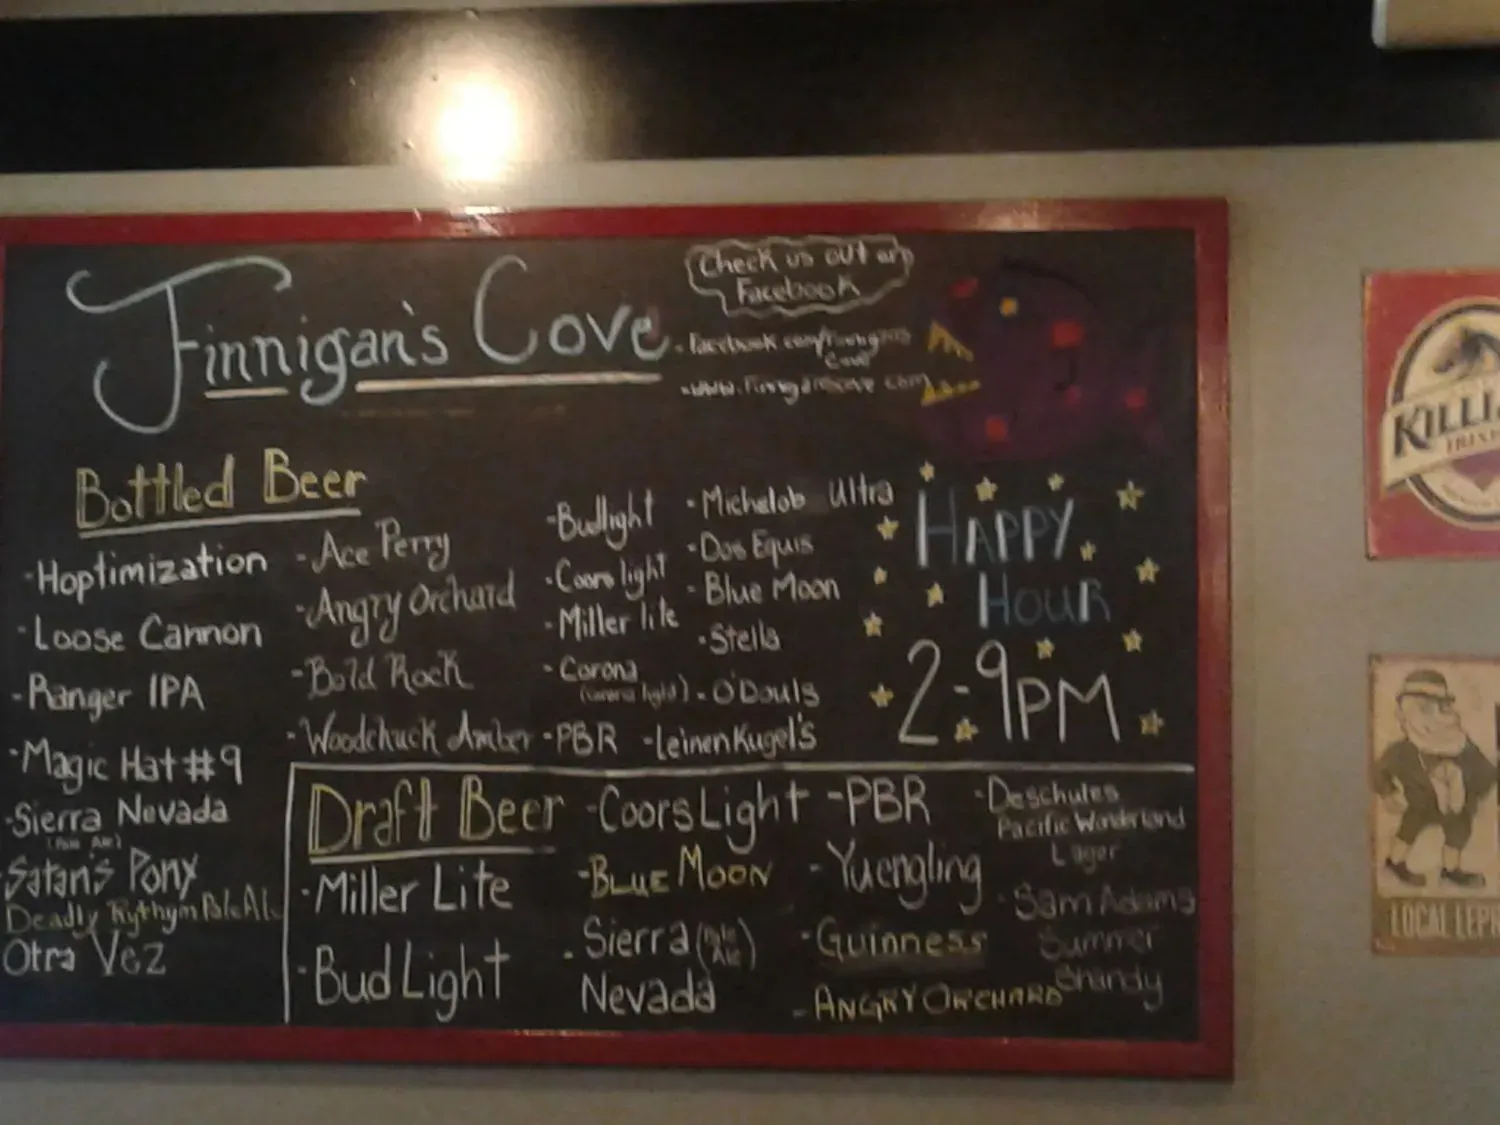 Finnigan's Cove
Check us out on
Facebook
- facebook.com/Finnigans
Cove
- www.Finniganscove.com
Bottled Beer
- Hoptimization
- Loose Cannon
- Ranger IPA
- Magic Hat #9
- Sierra Nevada
(Pale Ale)
Satan's Pony
Deadly Rythym Pale Ale
Otra Vez
- Ace Perry
- Angry Orchard
- Bold Rock
- Woodchuck Amber
- Budlight
- Coors light
- Miller lite
- Corona
(corona light)
- PBR
- Michelob Ultra
- Dos Equis
- Blue Moon
- Stella
- O'Douls
- Leinenkugel's
HAPPY
HOUR
2-9PM
Draft Beer
- Miller Lite
- Bud Light
- Coors Light
- BLUE MOON
- Sierra (Pale
Ale)
Nevada
- PBR
- Yuengling
- GUINNESS
- ANGRY ORCHARD
- Deschutes
Pacific Wonderland
Lager
- Sam Adams
Summer
Shandy
KILLI
IRISH
LOCAL LEPR